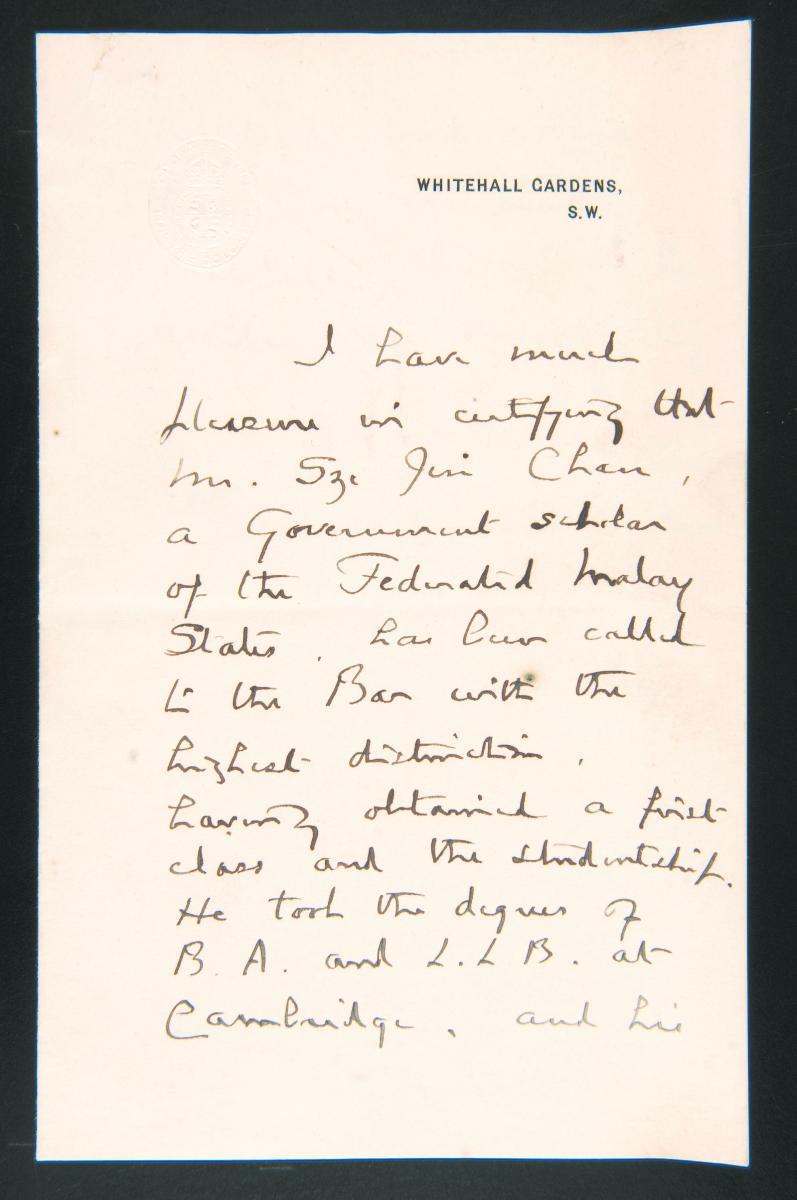 WHITEHALL GARDENS,
S.W.
I have much
pleasure in certifying that
Mr. Sze Jin Chan,
a Government scholar
of the Federated Malay
States, has been called
to the Bar with the
highest distinction,
having obtained a first
class and the studentship.
He took the degrees of
B. A. and L. L B. at
Cambridge, and his